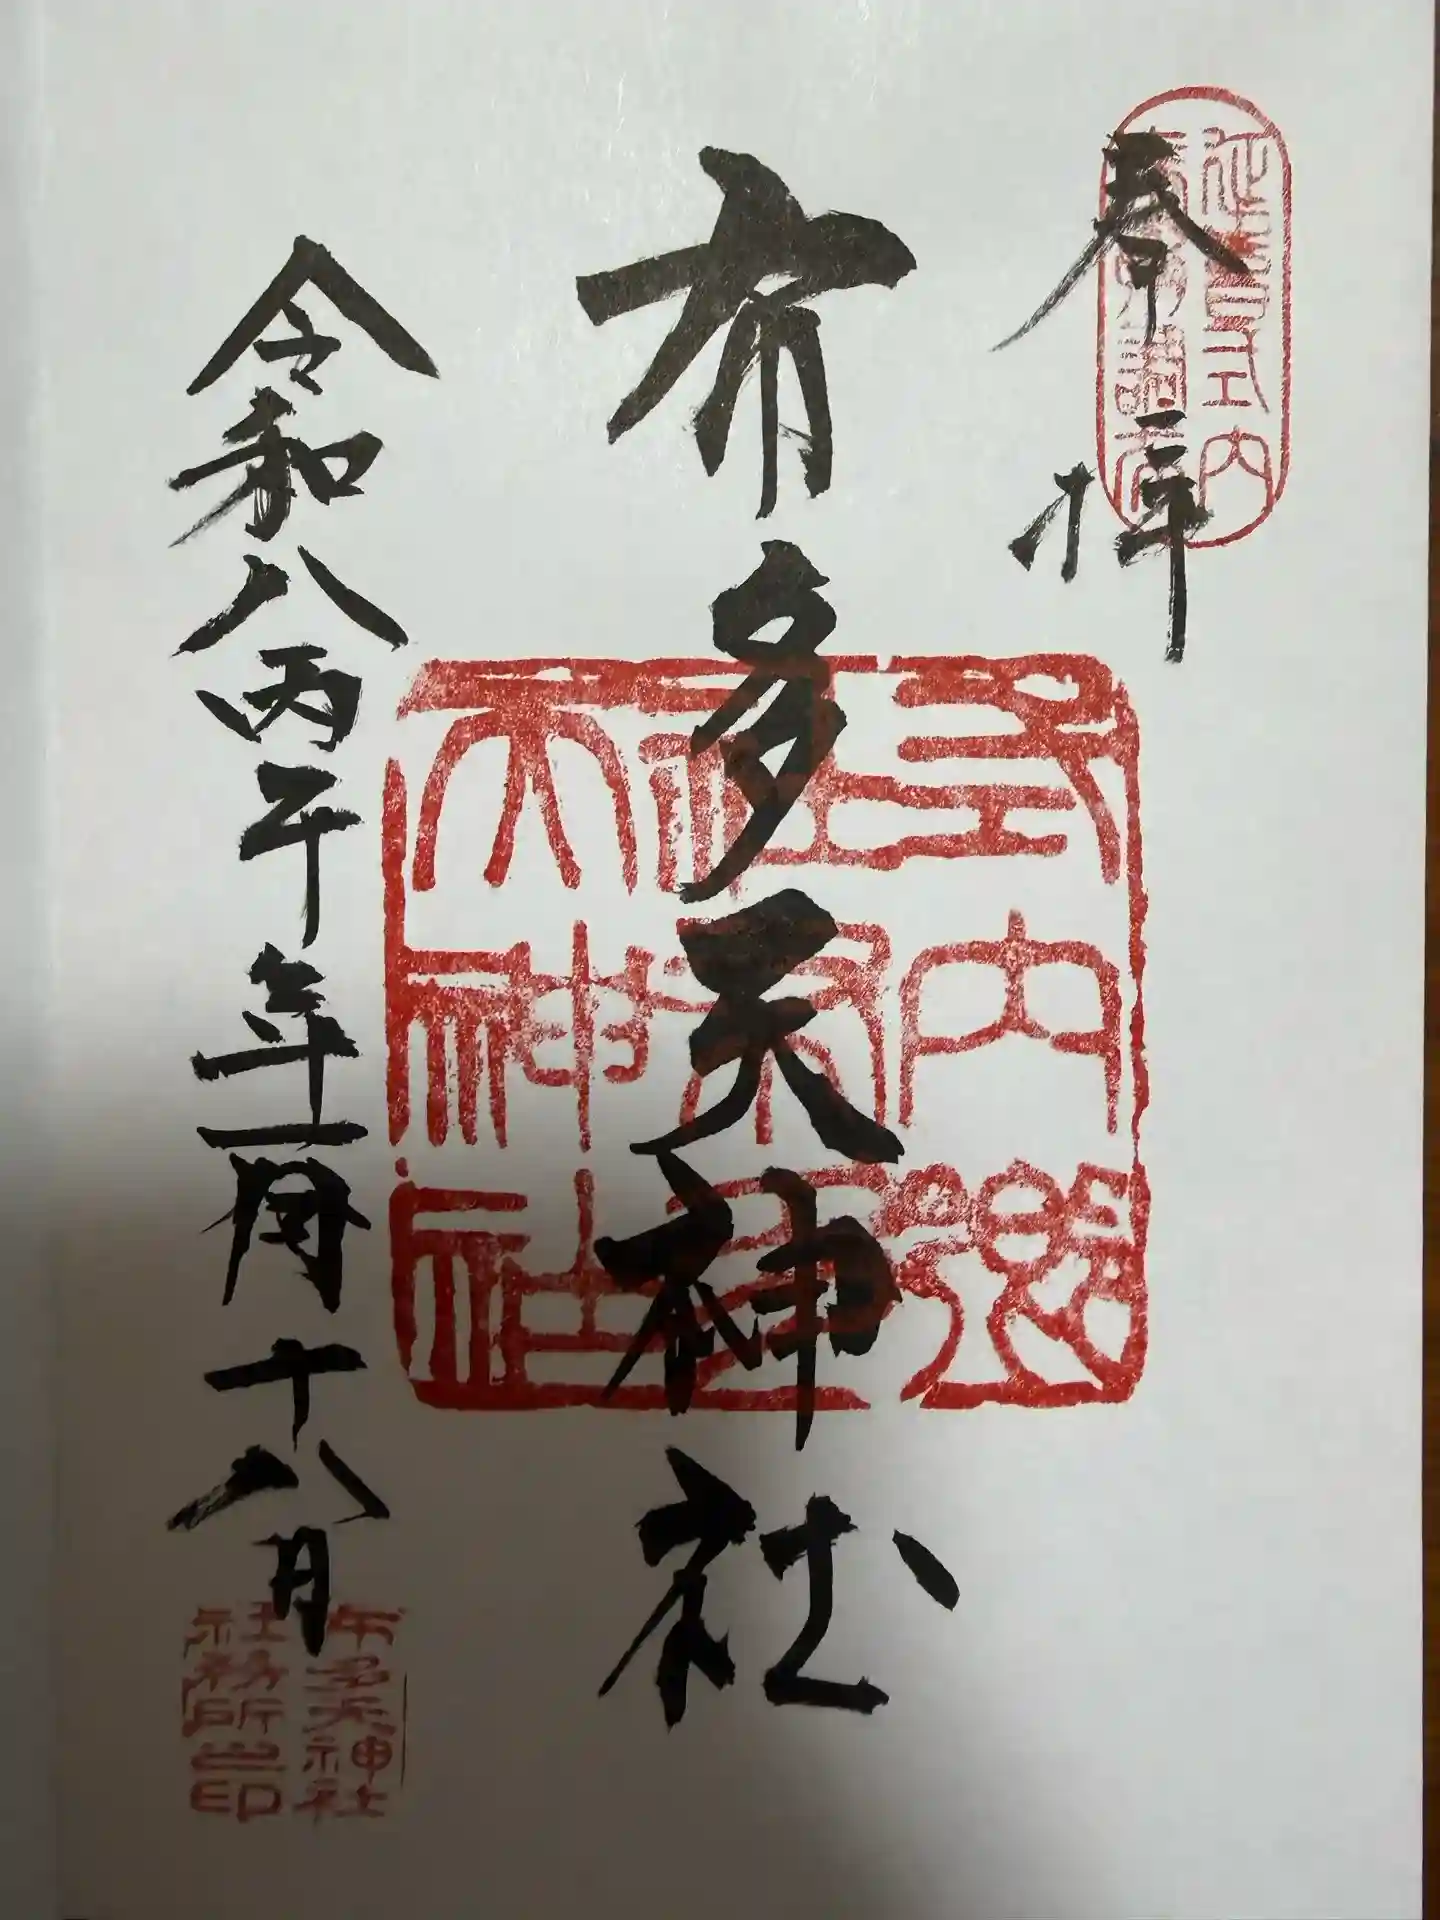 延喜式内
奉拝
布多天神社
式内郷
社布多
天神社
令和八丙午年一月十八日
布多天神社
社務所之印